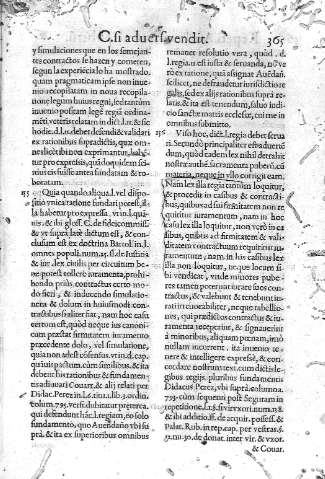 C. si aduers. vendit. 365
y simulaciones que en los semejan-
tes contractos se hazen y cometen,
segun la experiẽcia lo ha mostrado.
quam pragmaticam ipse non inue-
nio recopilatam in noua recopila-
tione legum huius regni, sed tantùm
inuenio possam legẽ regiã ordina-
mẽti veteris relatam in dict. l. & sic ho-
die d. l. as debet defendi & validari
ex rationibus supradictis, quæ om-
nes
pro expressis, quòd quidem sa-
tis iuris
roboratum.
153 Quia quando aliqua l. vel dispo-
sitio vnica ratione fundari potest, il-
la habetur pro expressa, vt in l. quã-
uis, & ibi gloss. C. de fideicommiss.
& vt supra latè dictum est, & con-
clusum est ex doctrina Bartol. in l.
omnes populi. num. 65. ff. de iustitia
& iur.
hendo prius contractus certo mo-
do fieri, & inducendo simulatio-
nem & dolum in huiusmodi con-
tractibus si aliter fiat, nam hoc casu
certum est, quòd neque ius canoni-
cum præstat firmitatem iuramento
præcedente dolo, vel simulatione,
quia non adest cõsensus. vt in d. cap.
cùm similibus, & ita
debent his rationibus & fundamen-
tis adiuuari Couar. & alij relati per
Didac. Perez in l. 6. titul. 1. lib. 3. ordin.
colum. 795. versi. dubitatur prætereà.
qui defendunt hãc l. regiam, eo solo
fundamento, quo Auendaño vbi su-
prà, & ita ex superioribus omnibus
remanet resolutio vera, quòd d.
l. regia iusta est & seruanda, nõ ve-
rò ex ratione, quã assignat Auendañ.
scilicet, ne defraudetur iurisdictio re-
galis, sed ex alijs rationibus supra re-
latis, & ita est tenendum, saluo iudi-
cio sanctæ matris ecclesiæ, cui me in
omnibus submitto.
156 Viso hoc, dict. l. regia debet serua-
ri. Secundò principaliter est aduertẽ-
dum, quòd eadem lex nihil derogat
nostræ authẽt. sacramenta puberũ.
materia, neque in yllo corrigit eam.
Nam lex illa regia tantùm loquitur,
& procedit in casibus & contracti-
bus, quibus ad sui firmitatem non re-
quiritur iuramentum, nam in hoc
casu lex illa loquitur, non verò in ca-
sibus, quibus ad firmitatem & vali-
ditatem contractuum requiritur iu-
ramentum, nam in his casibus lex
illa non loquitur, ne que locum si-
bi vendicat, vnde minores pube-
res iurantes possunt in suos con-
tractus, & valebunt & tenebunt iu-
rati
nes, qui prædictos contractus & iu-
ramenta receperint, & signauerint
à minoribus, aliquam pœnam, imò
nullam incurrent.
nere & intelligere expressè, & con-
cordare nostrum text. cum dictis le-
gibus regijs. pluribus fundamentis
Didacus Perez, vbi suprà. columna.
795. cùm sequenti post Seguram in
& ibi additio. ff. de acquir. possess. &
Palat. Rub. in rep. cap. per vestras. §.
num. 30. de donat. inter vir. & vxor.
& Couar.